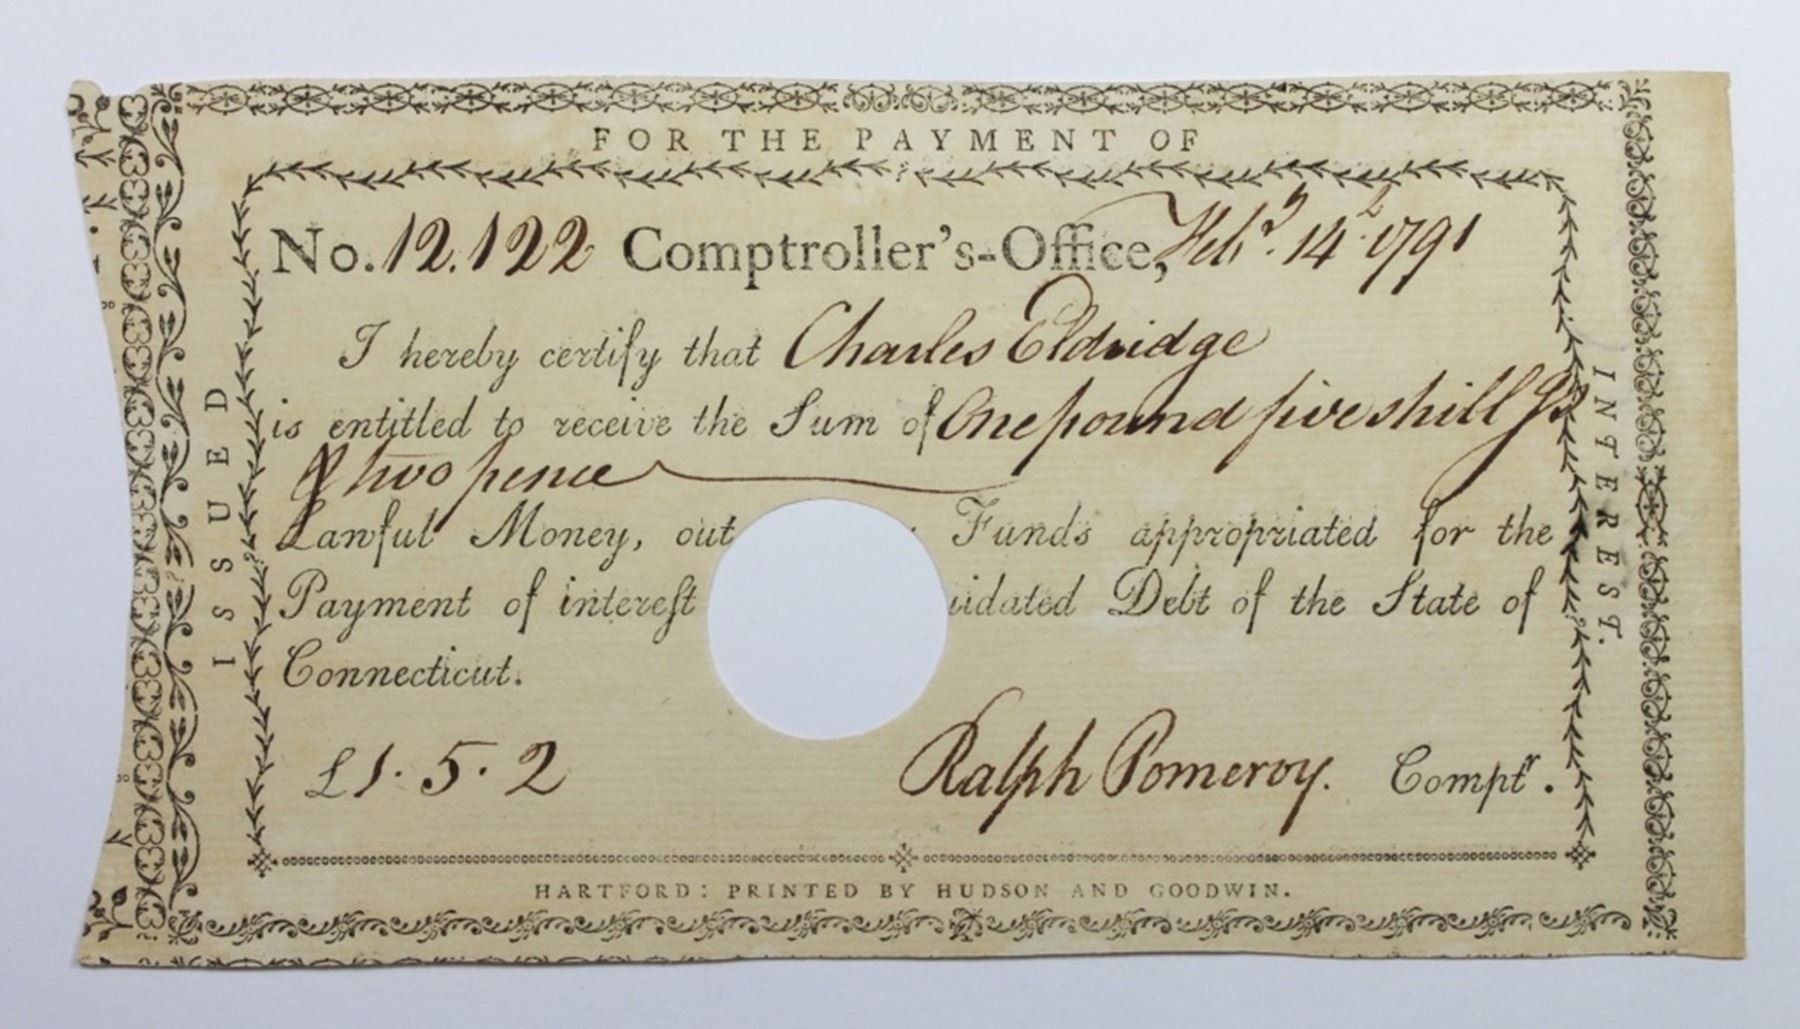 FOR THE PAYMENT OF
No. 12.122 Comptroller's-Office, Feby. 14 1791
I hereby certify that Charles Eldridge
is entitled to receive the Sum of One pound five shill gs
& two pence
Lawful Money, out Funds appropriated for the
Payment of interest uidated Debt of the State of
Connecticut.
£1.5.2 Ralph Pomeroy. Comptr.
HARTFORD: PRINTED BY HUDSON AND GOODWIN.
ISSUED
INTEREST.